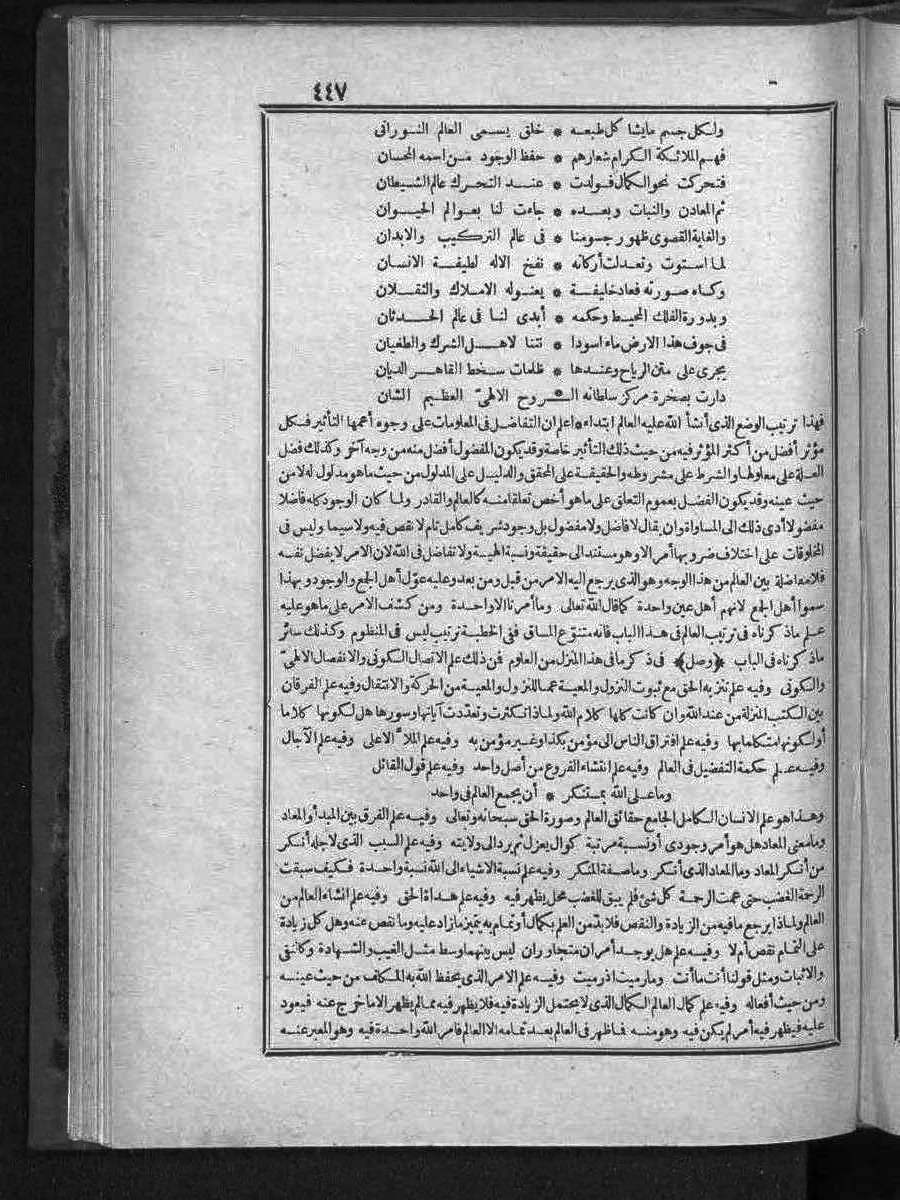 ٤٤٧
ولكل جسم ما يشا كل طبعه * خلق يسمى العالم النوراني
فهم الملائكة الكرام شعارهم * حفظ الوجود من اسمه المحسان
فتحركت نحو الكمال فولدت * عند التحرك عالم الشيطان
ثم المعادن والنبات وبعده * جاءت لنا بعوالم الحيوان
والغاية القصوى ظهور جسومنا * في عالم التركيب والابدان
لما استوت وتعدلت أركانه * نفخ الاله لطيفة الانسان
وكساه صورته فعاد خليفة * يعنو له الاملاك والثقلان
وبدورة الفلك المحيط وحكمه * أبدى لنا في عالم الحدثان
في جوف هذا الارض ماء اسودا * نتنا لاهل الشرك والطغيان
يجرى على متن الرياح وعندها * ظلمات سخط القاهر الديان
دارت بصخرة مركز سلطانه * الروح الالهيّ العظيم الشان
فهذا ترتيب الوضع الذى أنشأ الله عليه العالم ابتداء * اعلم ان التفاضل في المعلومات على وجوه أعمها التأثير فكل
مؤثر أفضل من أكثر المؤثر فيه من حيث ذلك التأثير خاصة وقد يكون المفضول أفضل منه من وجه آخر وكذلك فضل
العلة على معلولها والشرط على مشروطه والحقيقة على المحقق والدليل على المدلول من حيث ما هو مدلول له لا من
حيث عينه وقد يكون الفضل بعموم التعلق على ما هو أخص تعلقا منه كالعالم والقادر ولما كان الوجود كله فاضلا
مفضولا أدى ذلك الى المساواة وان يقال لا فاضل ولا مفضول بل وجود شريف كامل تام لا نقص فيه ولا سيما وليس في
المخلوقات على اختلاف ضروبها أمر الا وهو مستند الى حقيقة ونسبة الهية ولا تفاضل في الله لان الامر لا يفضل نفسه
فلا مفاضلة بين العالم من هذا الوجه وهو الذى يرجع اليه الامر من قبل ومن بعد وعليه عوّل أهل الجمع والوجود وبهذا
سموا أهل الجمع لانهم أهل عين واحدة كما قال الله تعالى وما أمرنا الا واحدة ومن كشف الامر على ما هو عليه
علم ما ذكرناه في ترتيب العالم في هذا الباب فانه متنوّع المساق ففى الخطبة ترتيب ليس في المنظوم وكذلك سائر
ما ذكرناه في الباب ﴿وصل﴾ في ذكر ما في هذا المنزل من العلوم فمن ذلك علم الاتصال الكونى والانفصال الالهيّ
والكونى وفيه علم تنزيه الحق مع ثبوت النزول والمعية عما للنزول والمعية من الحركة والانتقال وفيه علم الفرقان
بين الكتب المنزلة من عند الله وان كانت كلها كلام الله ولماذا تكثرت وتعدّدت آياتها وسورها هل لكونها كلاما
أو لكونها متكلما بها وفيه علم افتراق الناس الى مؤمن بكذا وغير مؤمن به وفيه علم الملأ الاعلى وفيه علم الآجال
وفيه علم حكمة التفضيل في العالم وفيه علم انتشاء الفروع من أصل واحد وفيه علم قول القائل
وما على الله بمستنكر * أن يجمع العالم في واحد
وهذا هو علم الانسان الكامل الجامع حقائق العالم وصورة الحق سبحانه وتعالى وفيه علم الفرق بين المبدأ والمعاد
وما معنى المعاد هل هو أمر وجودى أو نسبة مرتبة كوال يعزل ثم يرد الى ولايته وفيه علم السبب الذى لاجله أنكر
من أنكر المعاد وما المعاد الذى أنكر وما صفة المنكر وفيه علم نسبة الاشياء الى الله نسبة واحدة فكيف سبقت
الرحمة الغضب حتى عمت الرحمة كل شئ فلم يبق للغضب محل يظهر فيه وفيه علم هداة الحق وفيه علم انشاء العالم من
العالم ولماذا يرجع ما فيه من الزيادة والنقص فلا بدّ من العلم بكمال أو تمام به يتميز ما زاد عليه وما نقص عنه وهل كل زيادة
على التمام نقص أم لا وفيه علم هل يوجد أمران متجاوران ليس بينهما وسط مثل الغيب والشهادة وكالنفى
والاثبات ومثل قولنا أنت ما أنت وما رميت اذ رميت وفيه علم الامر الذى يحفظ الله به المكلف من حيث عينه
ومن حيث أفعاله وفيه علم كمال العالم الكمال الذى لا يحتمل الزيادة فيه فلا يظهر فيه مما لم يظهر الا ما خرج عنه فيعود
عليه فيظهر فيه أمر لم يكن فيه وهو منه فما ظهر في العالم بعد تمامه الا العالم فأمر الله واحدة فيه وهو المعبر عنه